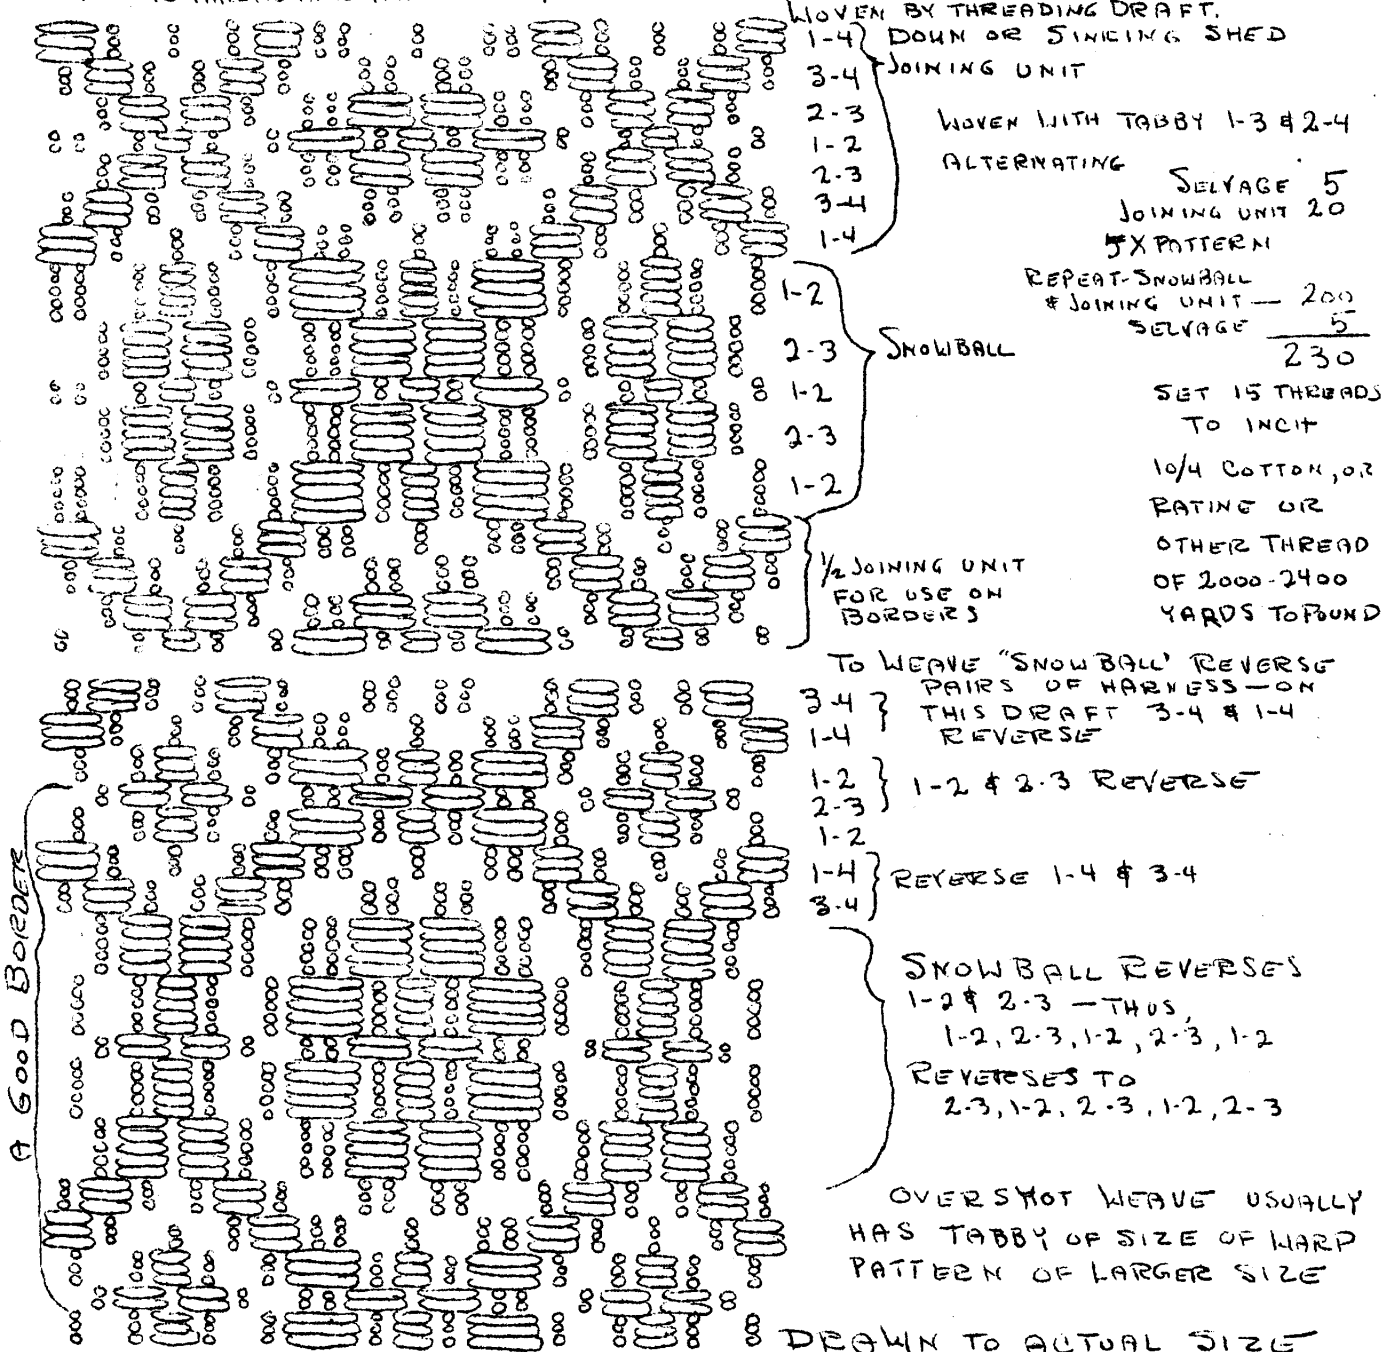 WOVEN BY THREADING DRAFT.
1-4 DOWN OR SINKING SHED
3-4 JOINING UNIT
2-3
1-2
2-3
3-4
1-4
WOVEN WITH TABBY 1-3 & 2-4
ALTERNATING
SELVAGE 5
JOINING UNIT 20
5 X PATTERN
REPEAT-SNOWBALL
& JOINING UNIT — 200
SELVAGE 5
230
SET 15 THREADS
TO INCH
10/4 COTTON, OR
RATINE OR
OTHER THREAD
OF 2000-2400
YARDS TO POUND
1-2
2-3
1-2
2-3
1-2
SNOWBALL
1/2 JOINING UNIT
FOR USE ON
BORDERS
TO WEAVE "SNOWBALL' REVERSE
PAIRS OF HARNESS—ON
THIS DRAFT 3-4 & 1-4
REVERSE
3-4
1-4
1-2
2-3
1-2 & 2-3 REVERSE
1-2
1-4
3-4
REVERSE 1-4 & 3-4
SNOWBALL REVERSES
1-2 & 2-3 — THUS,
1-2, 2-3, 1-2, 2-3, 1-2
REVERSES TO
2-3, 1-2, 2-3, 1-2, 2-3
A GOOD BORDER
OVERSHOT WEAVE USUALLY
HAS TABBY OF SIZE OF WARP
PATTERN OF LARGER SIZE
DRAWN TO ACTUAL SIZE